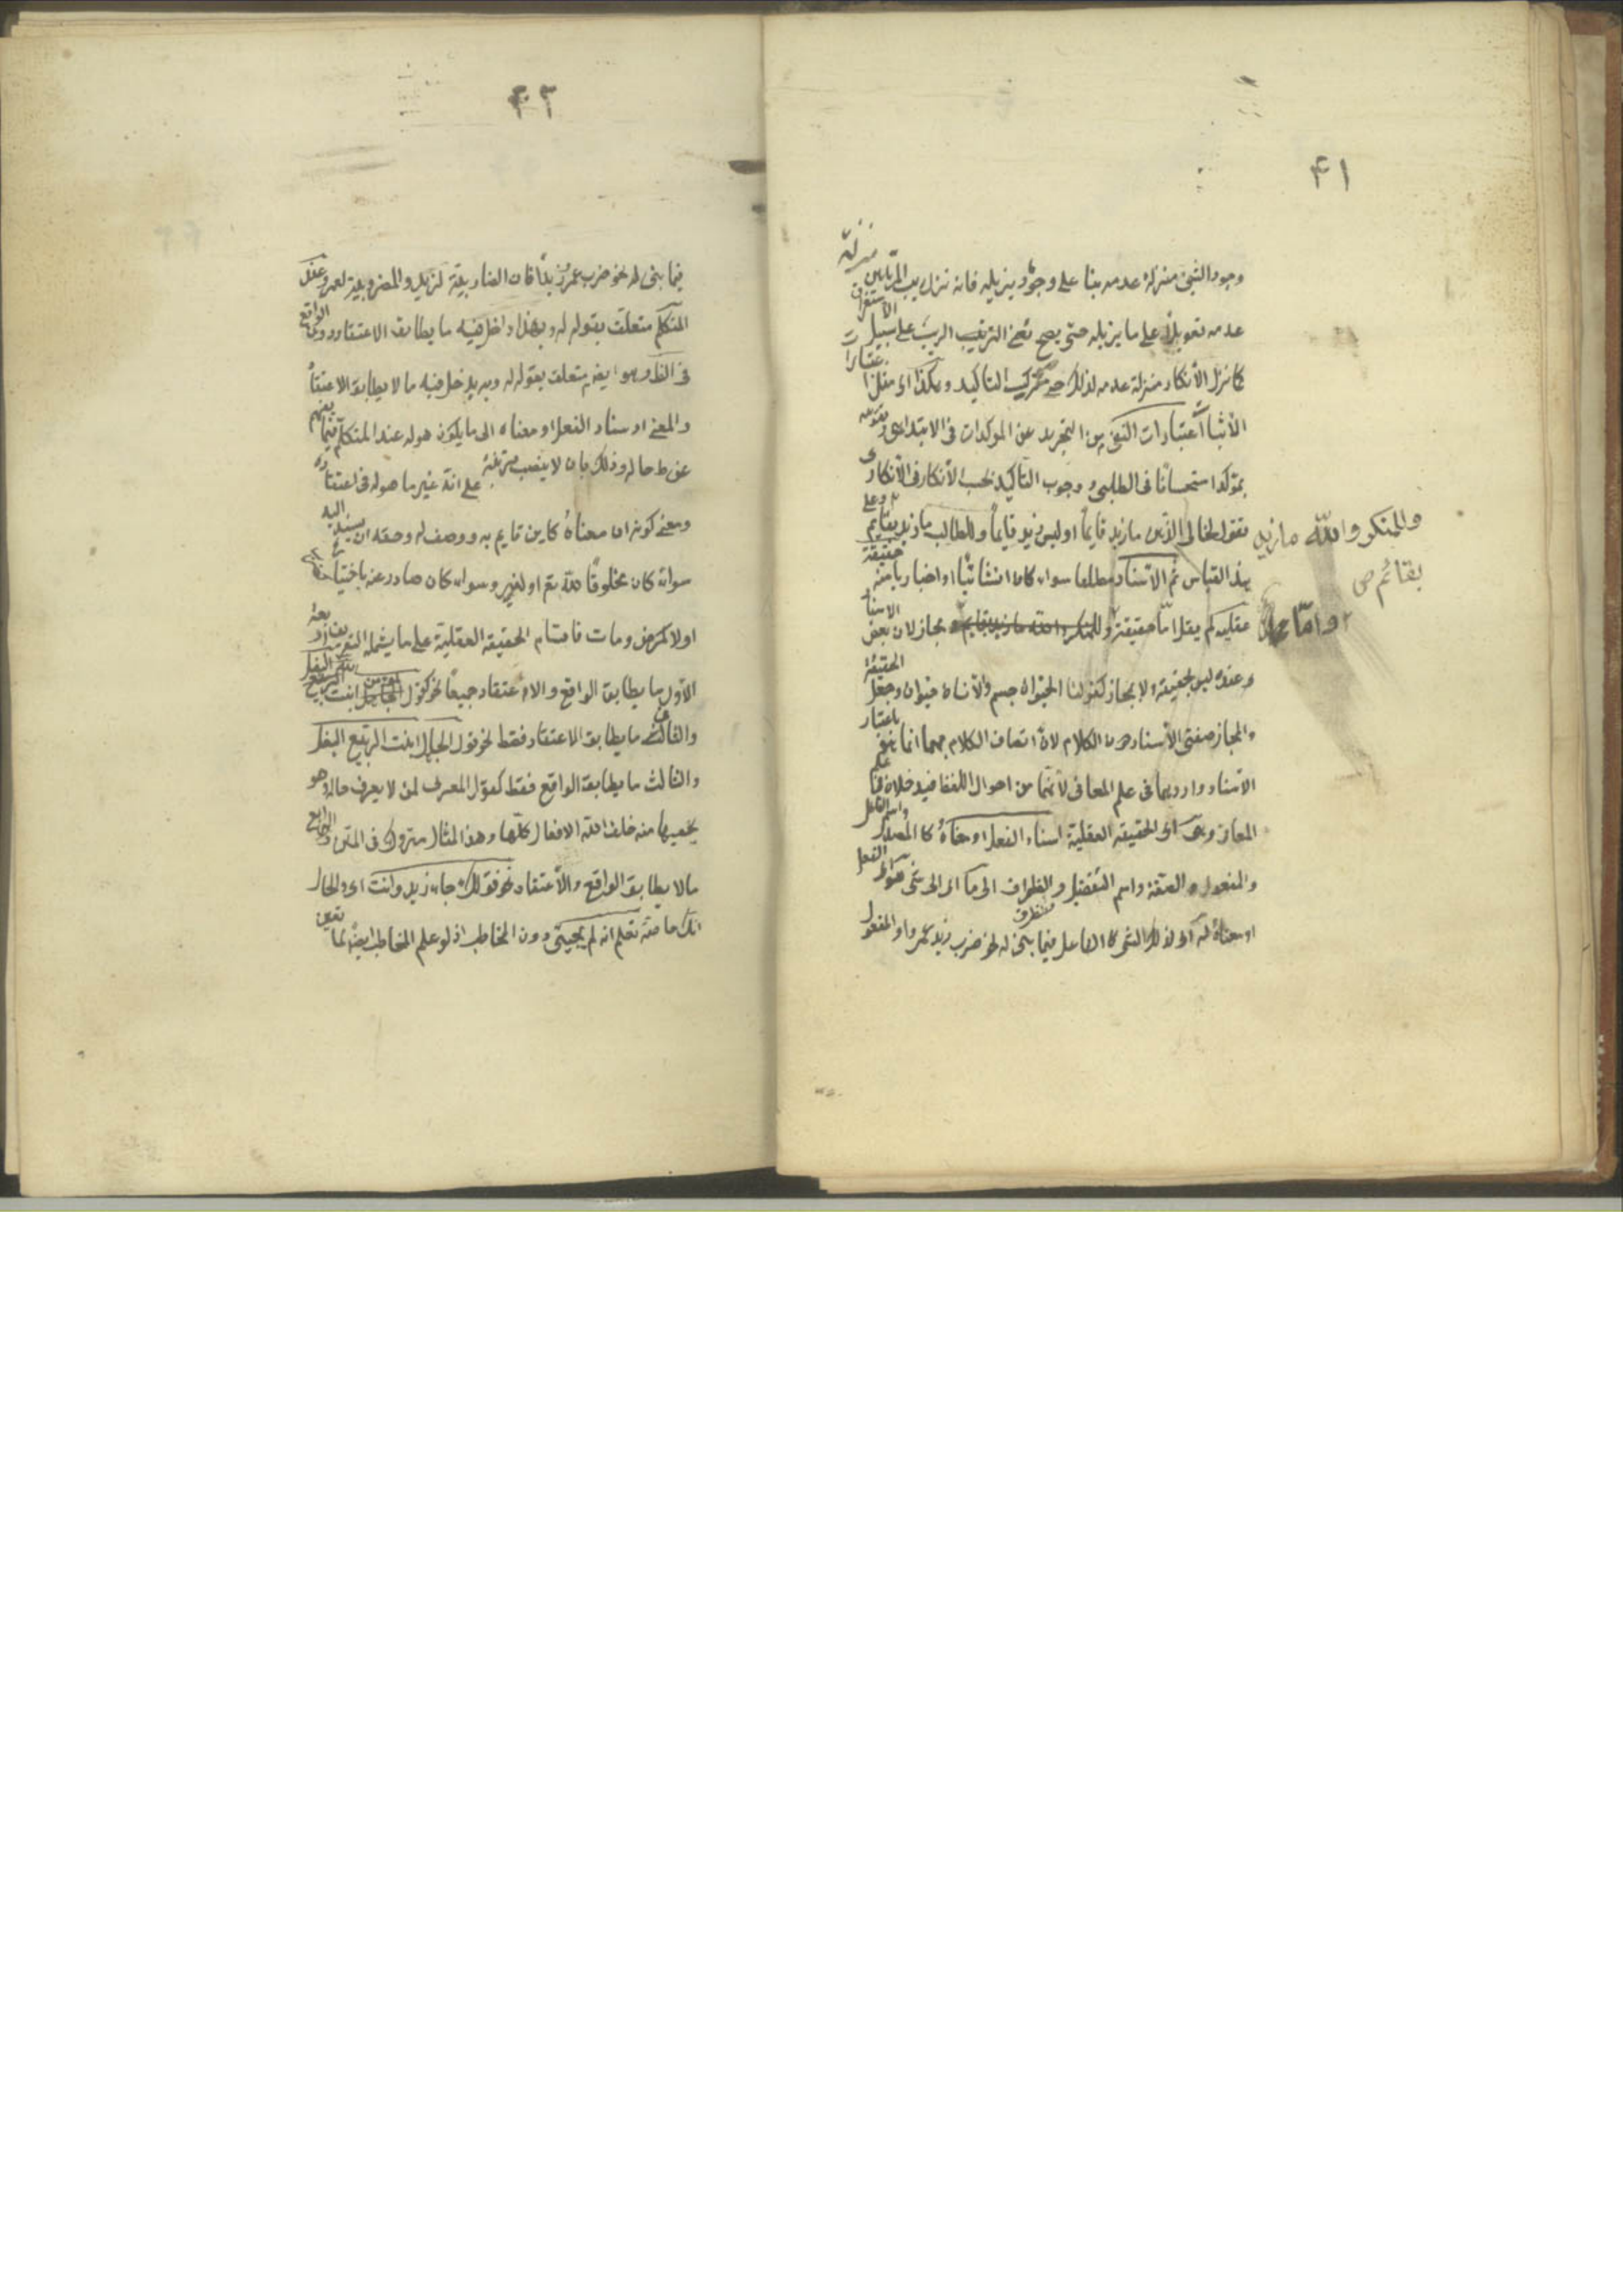 ۴۱
وجود الشئ منزلة عدمه بنا على وجود ما يزيله فانه نزل ريب المرتابين منزلة
عدمه تعويلا على ما يزيله حتى يصح نفى الريب على سبيل الاستغراق
كما نزل الانكار منزلة عدمه لذلك حتى ترك التاكيد وهكذا اى مثل اعتبارات
الاثبات اعتبارات النفى من التجريد عن الموكدات فى الابتدائى وتقويته
بمؤكد استحسانا فى الطلبى و وجوب التاكيد بحسب الانكار فى الانكارى
فتقول لخالى الذهن ما زيد قايما او ليس زيد قايما وللطالب ما زيد بقايم وعلى
والمنكر والله ما زيد
بقائم ص
هذا القياس ثم الاسناد مطلقا سواء كان انشائيا او اخباريا منه حقيقة
عقلية لم يقل اما حقيقة و مجاز لان بعض الاسناد
واما
عنده ليس بحقيقة ولا بمجاز كقولنا الحيوان جسم والانسان حيوان وجعل الحقيقة
والمجاز صفتى الاسناد دون الكلام لان اتصاف الكلام بهما انما هو باعتبار
الاسناد واوردهما فى علم المعانى لانهما من احوال اللفظ فيدخلان فى علم
المعانى وهى اى الحقيقة العقلية اسناد الفعل او معناه كالمصدر واسم الفاعل
والمفعول والصفة واسم التفضيل والظرف الى ما اى الى شئ هو اى الفعل
او معناه له اى لذلك الشئ كالفاعل فيما بنى له نحو ضرب زيد عمروا والمفعول
۴۲
فيما بنى له نحو ضرب عمرو فان الضاربية لزيد والمضروبية لعمرو عند
المتكلم متعلق بقوله له وبهذا دخل فيه ما يطابق الاعتقاد دون الواقع
فى الظ وهو ايضا متعلق بقوله له وبه يدخل فيه ما لا يطابق الاعتقاد
والمعنى اسناد الفعل او معناه الى ما يكون هو له عند المتكلم فيما يفهم
من ظ حاله وذلك بان لا ينصب قرينة على انه غير ما هو له فى اعتقاده
ومعنى كونه له ان معناه كاين قايم به ووصف له وحقه ان يسند اليه
سواء كان مخلوقا لله تع او لغيره وسواء كان صادر عنه باختياره
اولا كمرض ومات فاقسام الحقيقة العقلية على ما يشمله التعريف اربعة
الاول ما يطابق الواقع والاعتقاد جميعا نحو كقول المؤمن انبت الله البقل
والثانى ما يطابق الاعتقاد فقط نحو قول الجاهل انبت الربيع البقل
والثالث ما يطابق الواقع فقط كقول المعتزلى لمن لا يعرف حاله وهو
يخفيها منه خلق الله الافعال كلها وهذا المثال متروك فى المتن والرابع
ما لا يطابق الواقع والاعتقاد نحو قولك جاء زيد وانت اى والحال
انك خاصة تعلم انه لم يجيئ دون المخاطب اذ لو علم المخاطب ايضا لما تعين